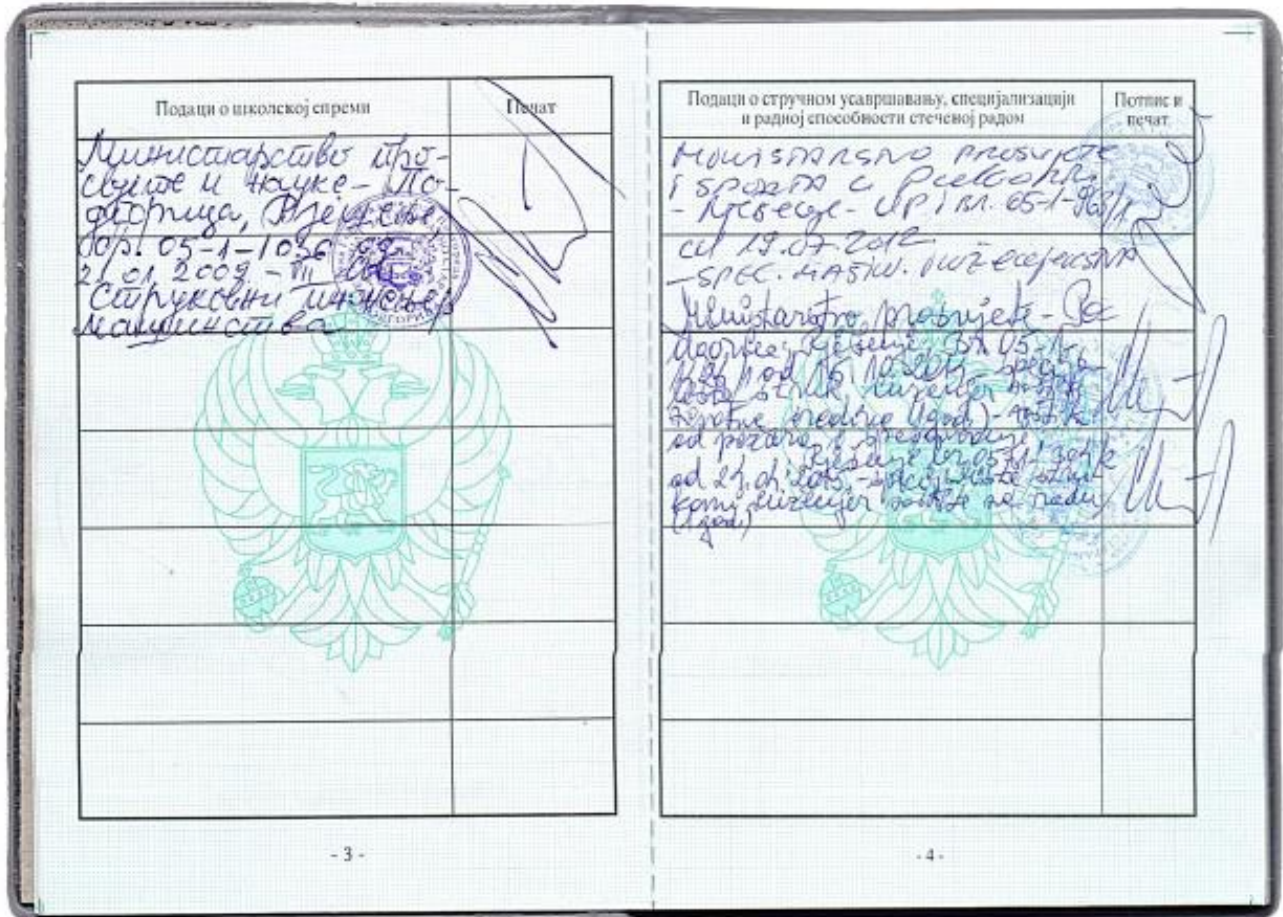 Подаци о школској спреми
Печат
Министарство про-
свјете и науке - По-
дгорица, Рјешење,
бр. 05-1-1036 од
21.01.2009 - VII
Струковни инжењер
машинства
- 3 -
Подаци о стручном усавршавању, специјализацији
и радној способности стеченој радом
Потпис и
печат
MINISTARSTVO PROSVJETE
I SPORTA U
- RJEŠENJE - UPI BR. 05-1-
OD 19.07.2012
- SPEC. MAŠIN. INŽENJERSTVA
Ministarstvo prosvjete - Po
dgorica, Rješenje br. 05-1-
od 16.10.2014
strukt. inženjer
životne sredine (1 god.) -
od požara i
Rješenje br. 05-1-
od 21.01.2015. - specijalista struk
kovni inženjer zaštite na radu
(1 god)
- 4 -